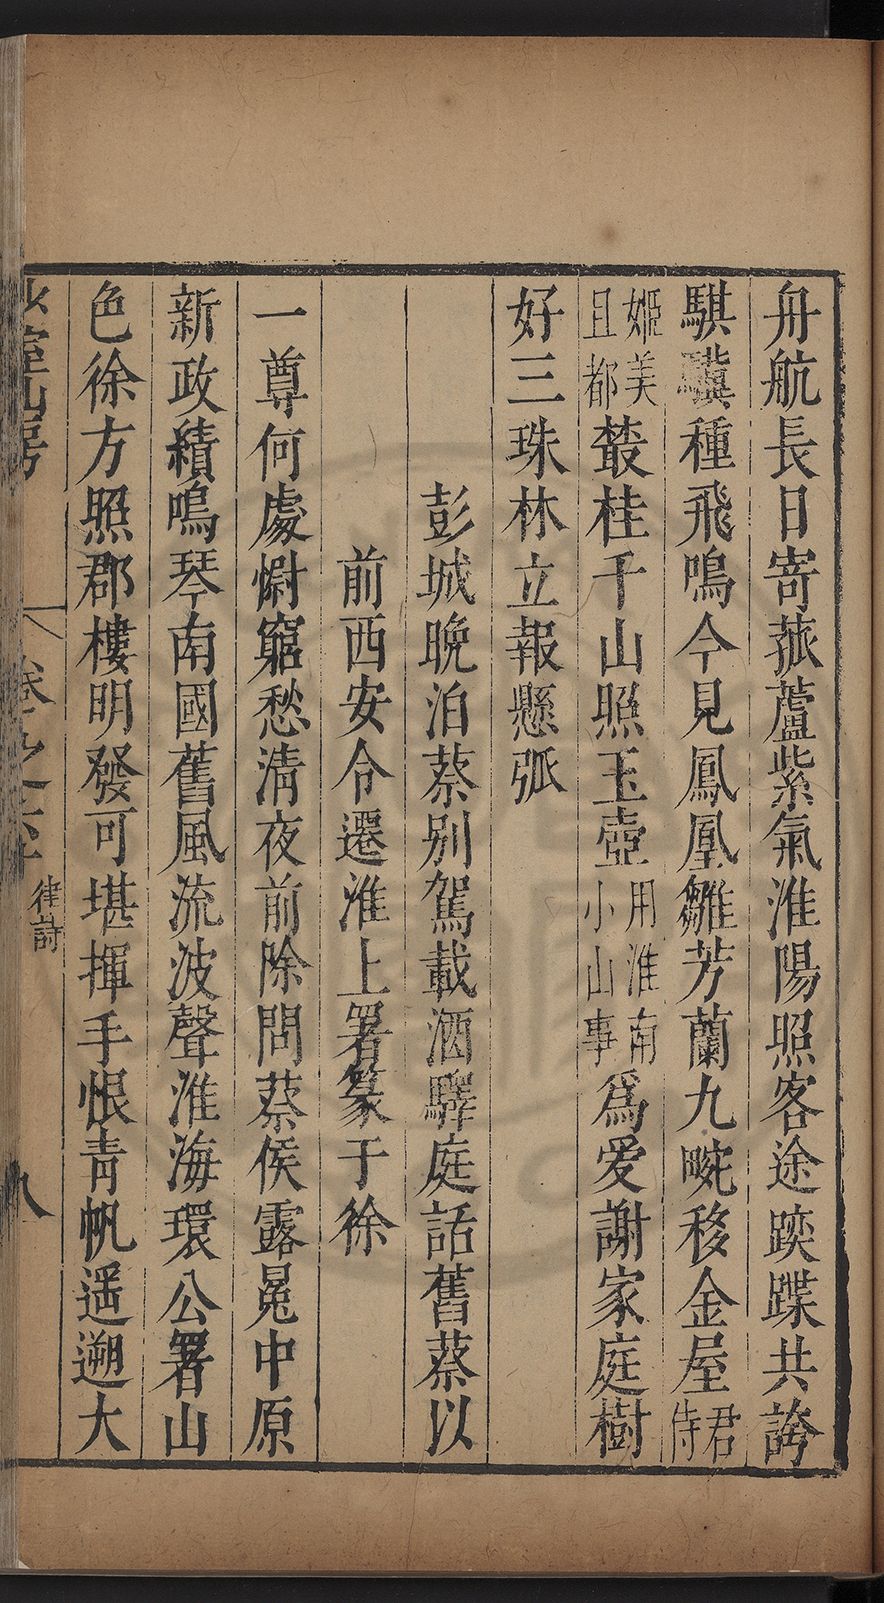 舟航長日寄菰蘆紫氣淮陽照客途䠆蹀共誇
騏驥種飛鳴今見鳳凰雛芳蘭九畹移金屋君侍
姬美且都叢桂千山照玉壺用淮南小山事為愛謝家庭樹
好三珠林立報懸弧
彭城晚泊蔡別駕載酒驛庭話舊蔡以
前西安令遷淮上署篆于徐
一尊何處慰窮愁清夜前除問蔡侯露冕中原
新政績鳴琴南國舊風流波聲淮海環公署山
色徐方照郡樓明發可堪揮手恨青帆遥遡大
室山房
卷之
律詩
八